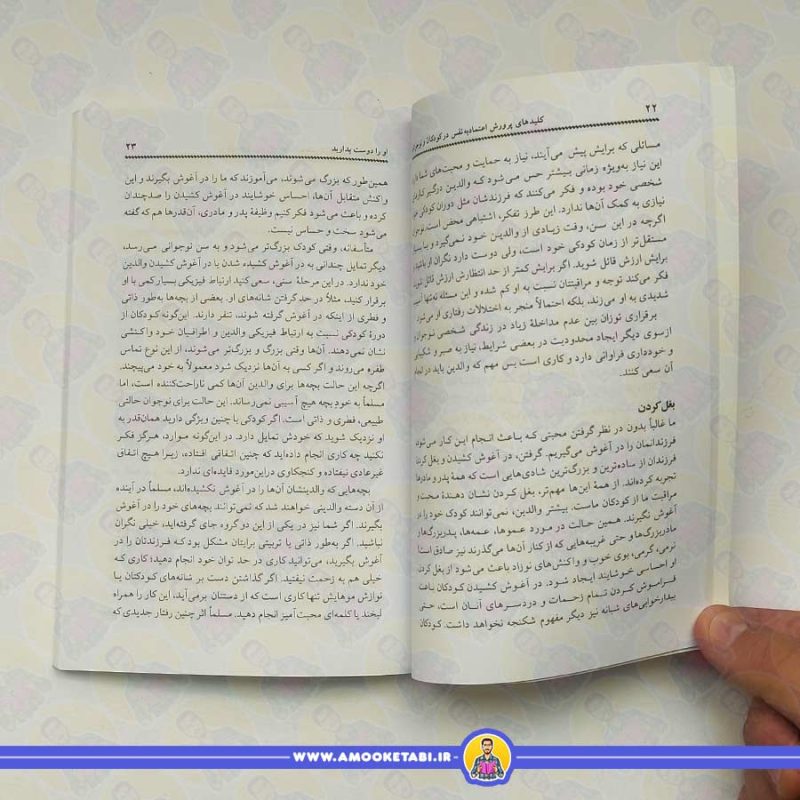 ۲۲
کلیدهای پرورش اعتمادبه‌نفس در کودکان و نوجوانان
مسائلی که برایش پیش می‌آیند، نیاز به حمایت و محبت‌های شما دارد.
این نیاز به‌ویژه زمانی بیشتر حس می‌شود که والدین درگیر کارهای
شخصی خود بوده و فکر می‌کنند که فرزندشان مثل دوران کودکی خود
نیازی به کمک آن‌ها ندارد. این طرز تفکر، اشتباهی محض است. نوجوان
اگرچه در این سن، وقت زیادی از والدین خود نمی‌گیرد و یا بسیار
مستقل‌تر از زمان کودکی خود است، ولی دوست دارد نگران او باشید و
برایش ارزش قائل شوید. اگر برایش کمتر از حد انتظارش ارزش قائل شوید،
فکر می‌کند توجه و مراقبتتان نسبت به او کم شده و این مسئله نه‌تنها آسیب
شدیدی به او می‌زند، بلکه احتمالاً منجر به اختلالات رفتاری او می‌شود.
برقراری توازن بین عدم مداخلهٔ زیاد در زندگی شخصی نوجوان و
ازسوی دیگر ایجاد محدودیت در بعضی شرایط، نیاز به صبر و شکیبایی
و خودداری فراوانی دارد و کاری است بس مهم که والدین باید در انجام
آن سعی کنند.
بغل کردن
ما غالباً بدون در نظر گرفتن محبتی که باعث انجام این کار می‌شود،
فرزندانمان را در آغوش می‌گیریم. گرفتن، در آغوش کشیدن و بغل کردن
فرزندان از ساده‌ترین و بزرگ‌ترین شادی‌هایی است که همهٔ پدر و مادرها
تجربه کرده‌اند. از همهٔ این‌ها مهم‌تر، بغل کردن نشان دهندهٔ محبت و
مراقبت ما از کودکان ماست. بیشتر والدین، نمی‌توانند کودک خود را در
آغوش نگیرند. همین حالت در مورد عموها، عمه‌ها، پدربزرگ‌ها و
مادربزرگ‌ها و حتی غریبه‌هایی که از کنار آن‌ها می‌گذرند نیز صادق است.
نرمی، گرمی، بوی خوب و واکنش‌های نوزاد باعث می‌شود از بغل کردن
او احساسی خوشایند ایجاد شود. در آغوش کشیدن کودکان باعث
فراموش کردن تمام زحمات و دردسرهای آنان است، حتی
بیدارخوابی‌های شبانه نیز دیگر مفهوم شکنجه نخواهد داشت. کودکان
او را دوست بدارید
۲۳
همین‌طور که بزرگ می‌شوند، می‌آموزند که ما را در آغوش بگیرند و این
واکنش متقابل آن‌ها، احساس خوشایند در آغوش کشیدن را صدچندان
کرده و باعث می‌شود فکر کنیم وظیفهٔ پدر و مادری، آن‌قدرها هم که گفته
می‌شود سخت و حساس نیست.
متأسفانه، وقتی کودک بزرگ‌تر می‌شود و به سن نوجوانی می‌رسد،
دیگر تمایل چندانی به در آغوش کشیده شدن یا در آغوش کشیدن والدین
خود ندارد. در این مرحلهٔ سنی، سعی کنید ارتباط فیزیکی بسیار کمی با او
برقرار کنید، مثلاً در حد گرفتن شانه‌های او. بعضی از بچه‌ها به‌طور ذاتی
و فطری از اینکه در آغوش گرفته شوند، تنفر دارند. این‌گونه کودکان از
دورهٔ کودکی نسبت به ارتباط فیزیکی والدین و اطرافیان خود واکنشی
نشان نمی‌دهند. آن‌ها وقتی بزرگ و بزرگ‌تر می‌شوند، از این نوع تماس
طفره می‌روند و اگر کسی به آن‌ها نزدیک شود معمولاً به خود می‌پیچند.
اگرچه این حالت بچه‌ها برای والدین آن‌ها کمی ناراحت‌کننده است، اما
مسلماً به خودِ بچه هیچ آسیبی نمی‌رساند. این حالت برای نوجوان حالتی
طبیعی، فطری و ذاتی است. اگر کودکی با چنین ویژگی دارید همان‌قدر به
او نزدیک شوید که خودش تمایل دارد. در این‌گونه موارد، هرگز فکر
نکنید چه کاری انجام داده‌اید که چنین اتفاقی افتاده، زیرا هیچ اتفاق
غیرعادی نیفتاده و کنجکاوی دراین‌مورد فایده‌ای ندارد.
بچه‌هایی که والدینشان آن‌ها را در آغوش نکشیده‌اند، مسلماً در آینده
از آن دسته والدینی خواهند شد که نمی‌توانند بچه‌های خود را در آغوش
بگیرند. اگر شما نیز در یکی از این دو گروه جای گرفته‌اید، خیلی نگران
نباشید. اگر به‌طور ذاتی یا تربیتی برایتان مشکل بود که فرزندتان را در
آغوش بگیرید، می‌توانید کاری در حد توان خود انجام دهید؛ کاری که
خیلی هم به زحمت نیفتید. اگر گذاشتن دست بر شانه‌های کودکتان یا
نوازش موهایش تنها کاری است که از دستتان برمی‌آید، این کار را همراه
لبخند یا کلمه‌ای محبت‌آمیز انجام دهید. مسلماً اثر چنین رفتار جدیدی که
WWW.AMOOKETABI.IR